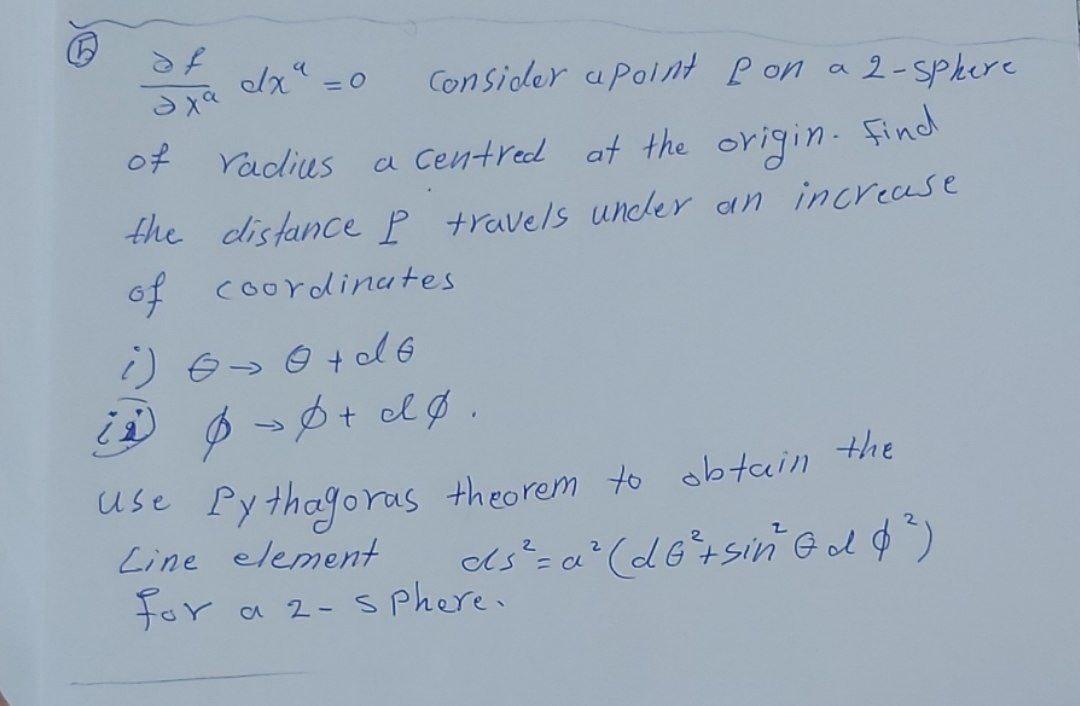 ⑤ ∂f/∂xᵃ dxᵃ = 0 Consider a point P on a 2-sphere
of radius a centred at the origin. Find
the distance P travels under an increase
of coordinates
i) θ → θ + dθ
ii) ϕ → ϕ + dϕ.
use Pythagoras theorem to obtain the
Line element ds² = a² (dθ² + sin² θ dϕ²)
for a 2-sphere.